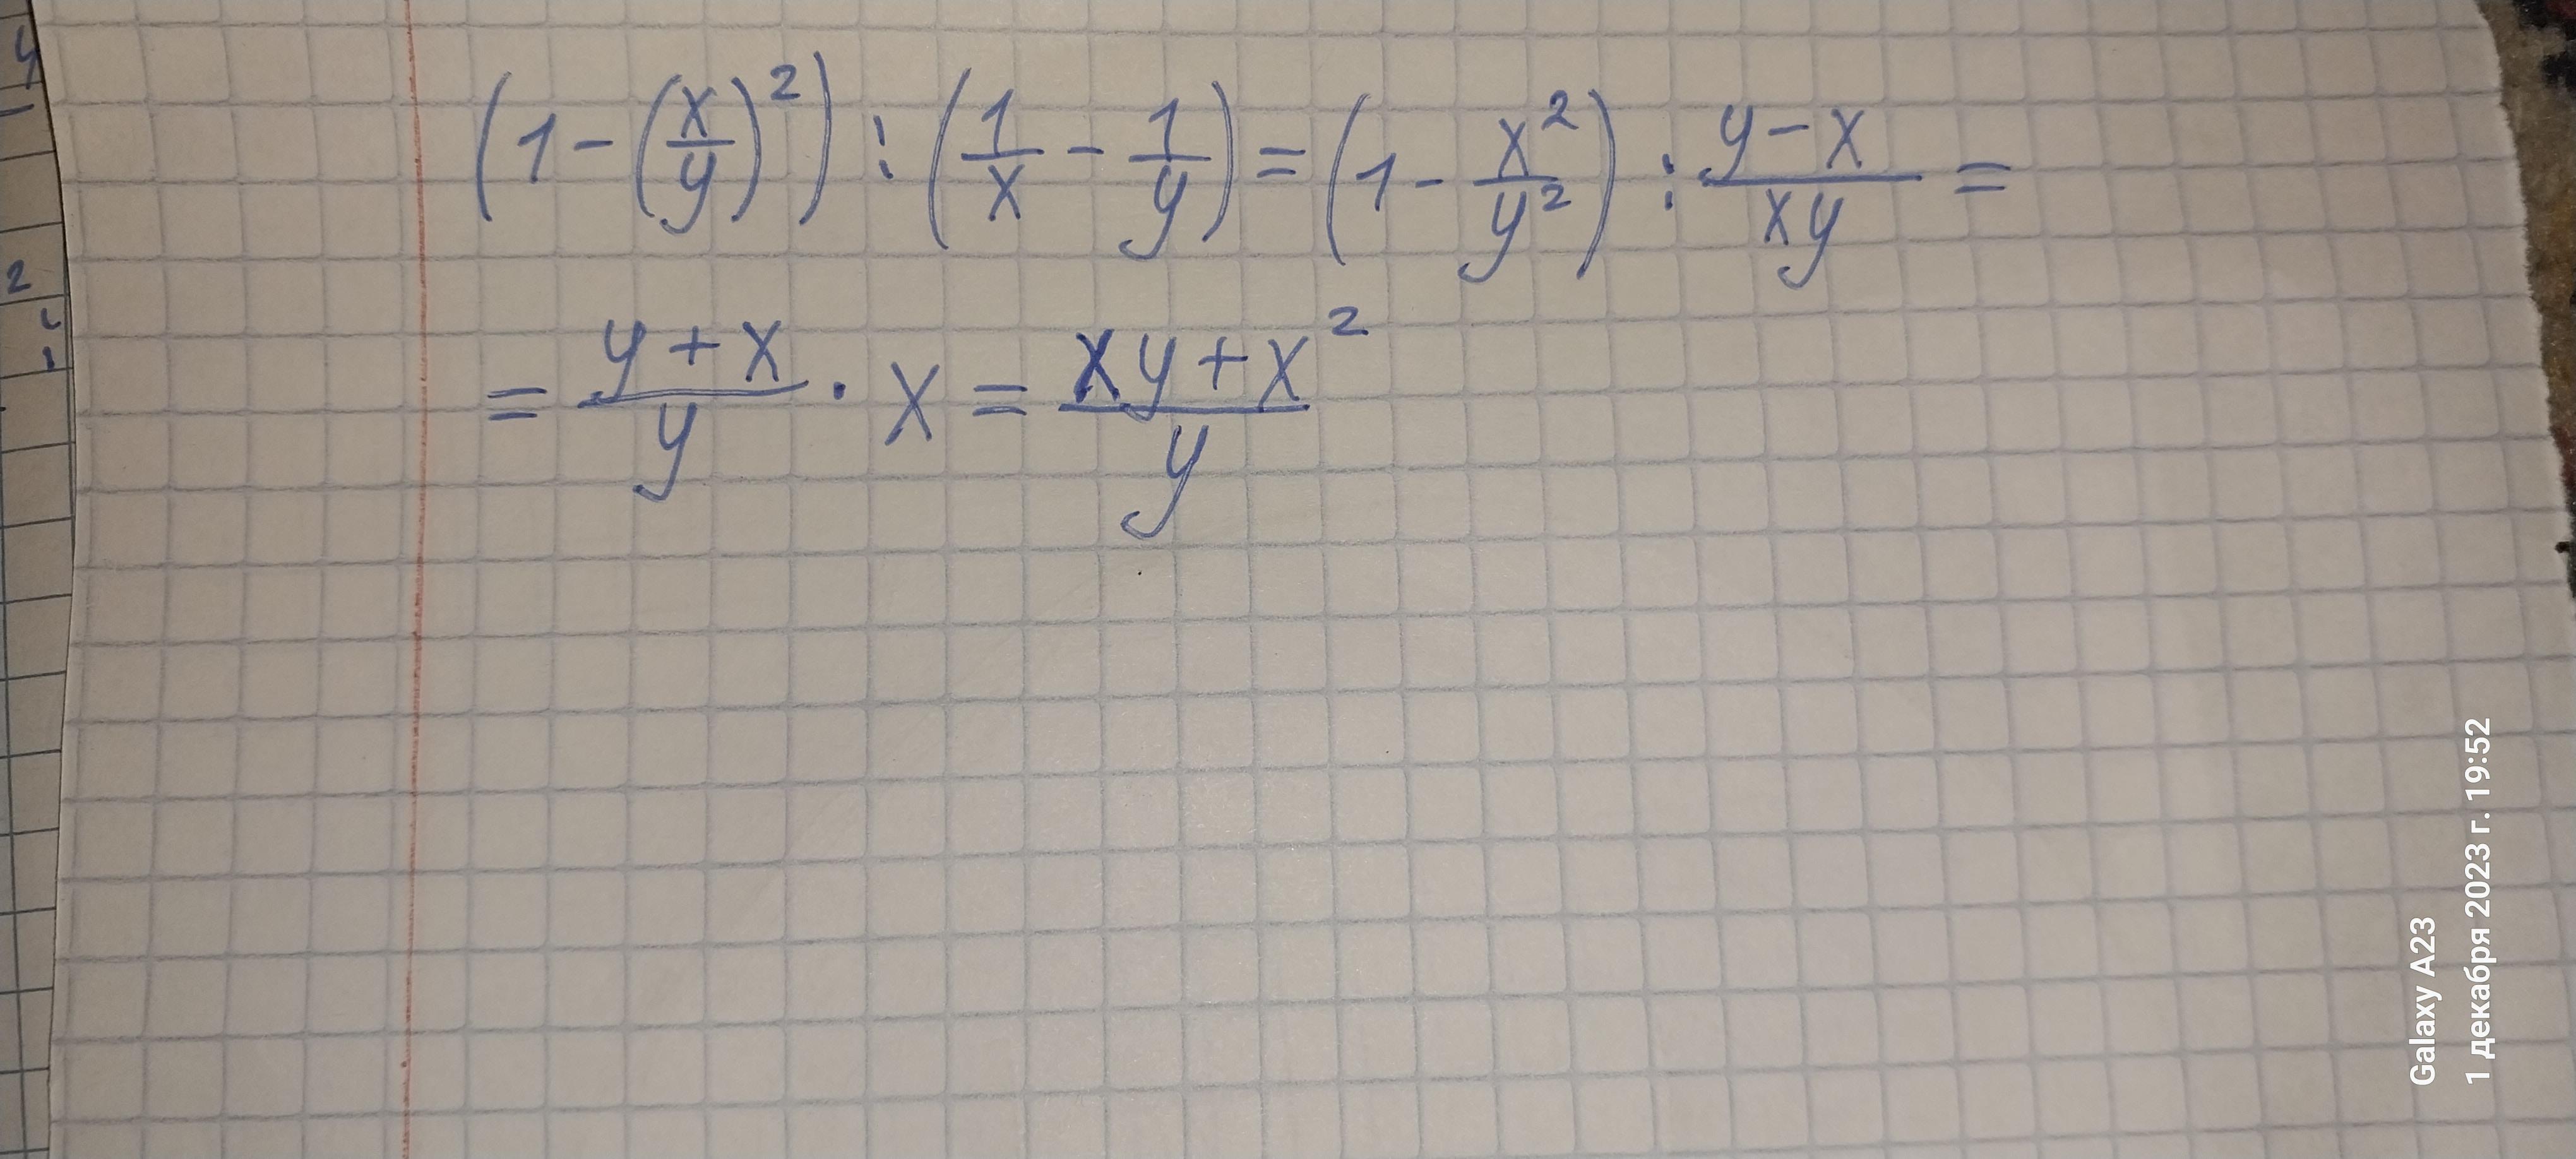 (1-(x/y)²):(1/x-1/y)=(1-x²/y²):(y-x)/xy=
=(y+x)/y·x=(xy+x²)/y
y
2
Galaxy A23
1 декабря 2023 г. 19:52